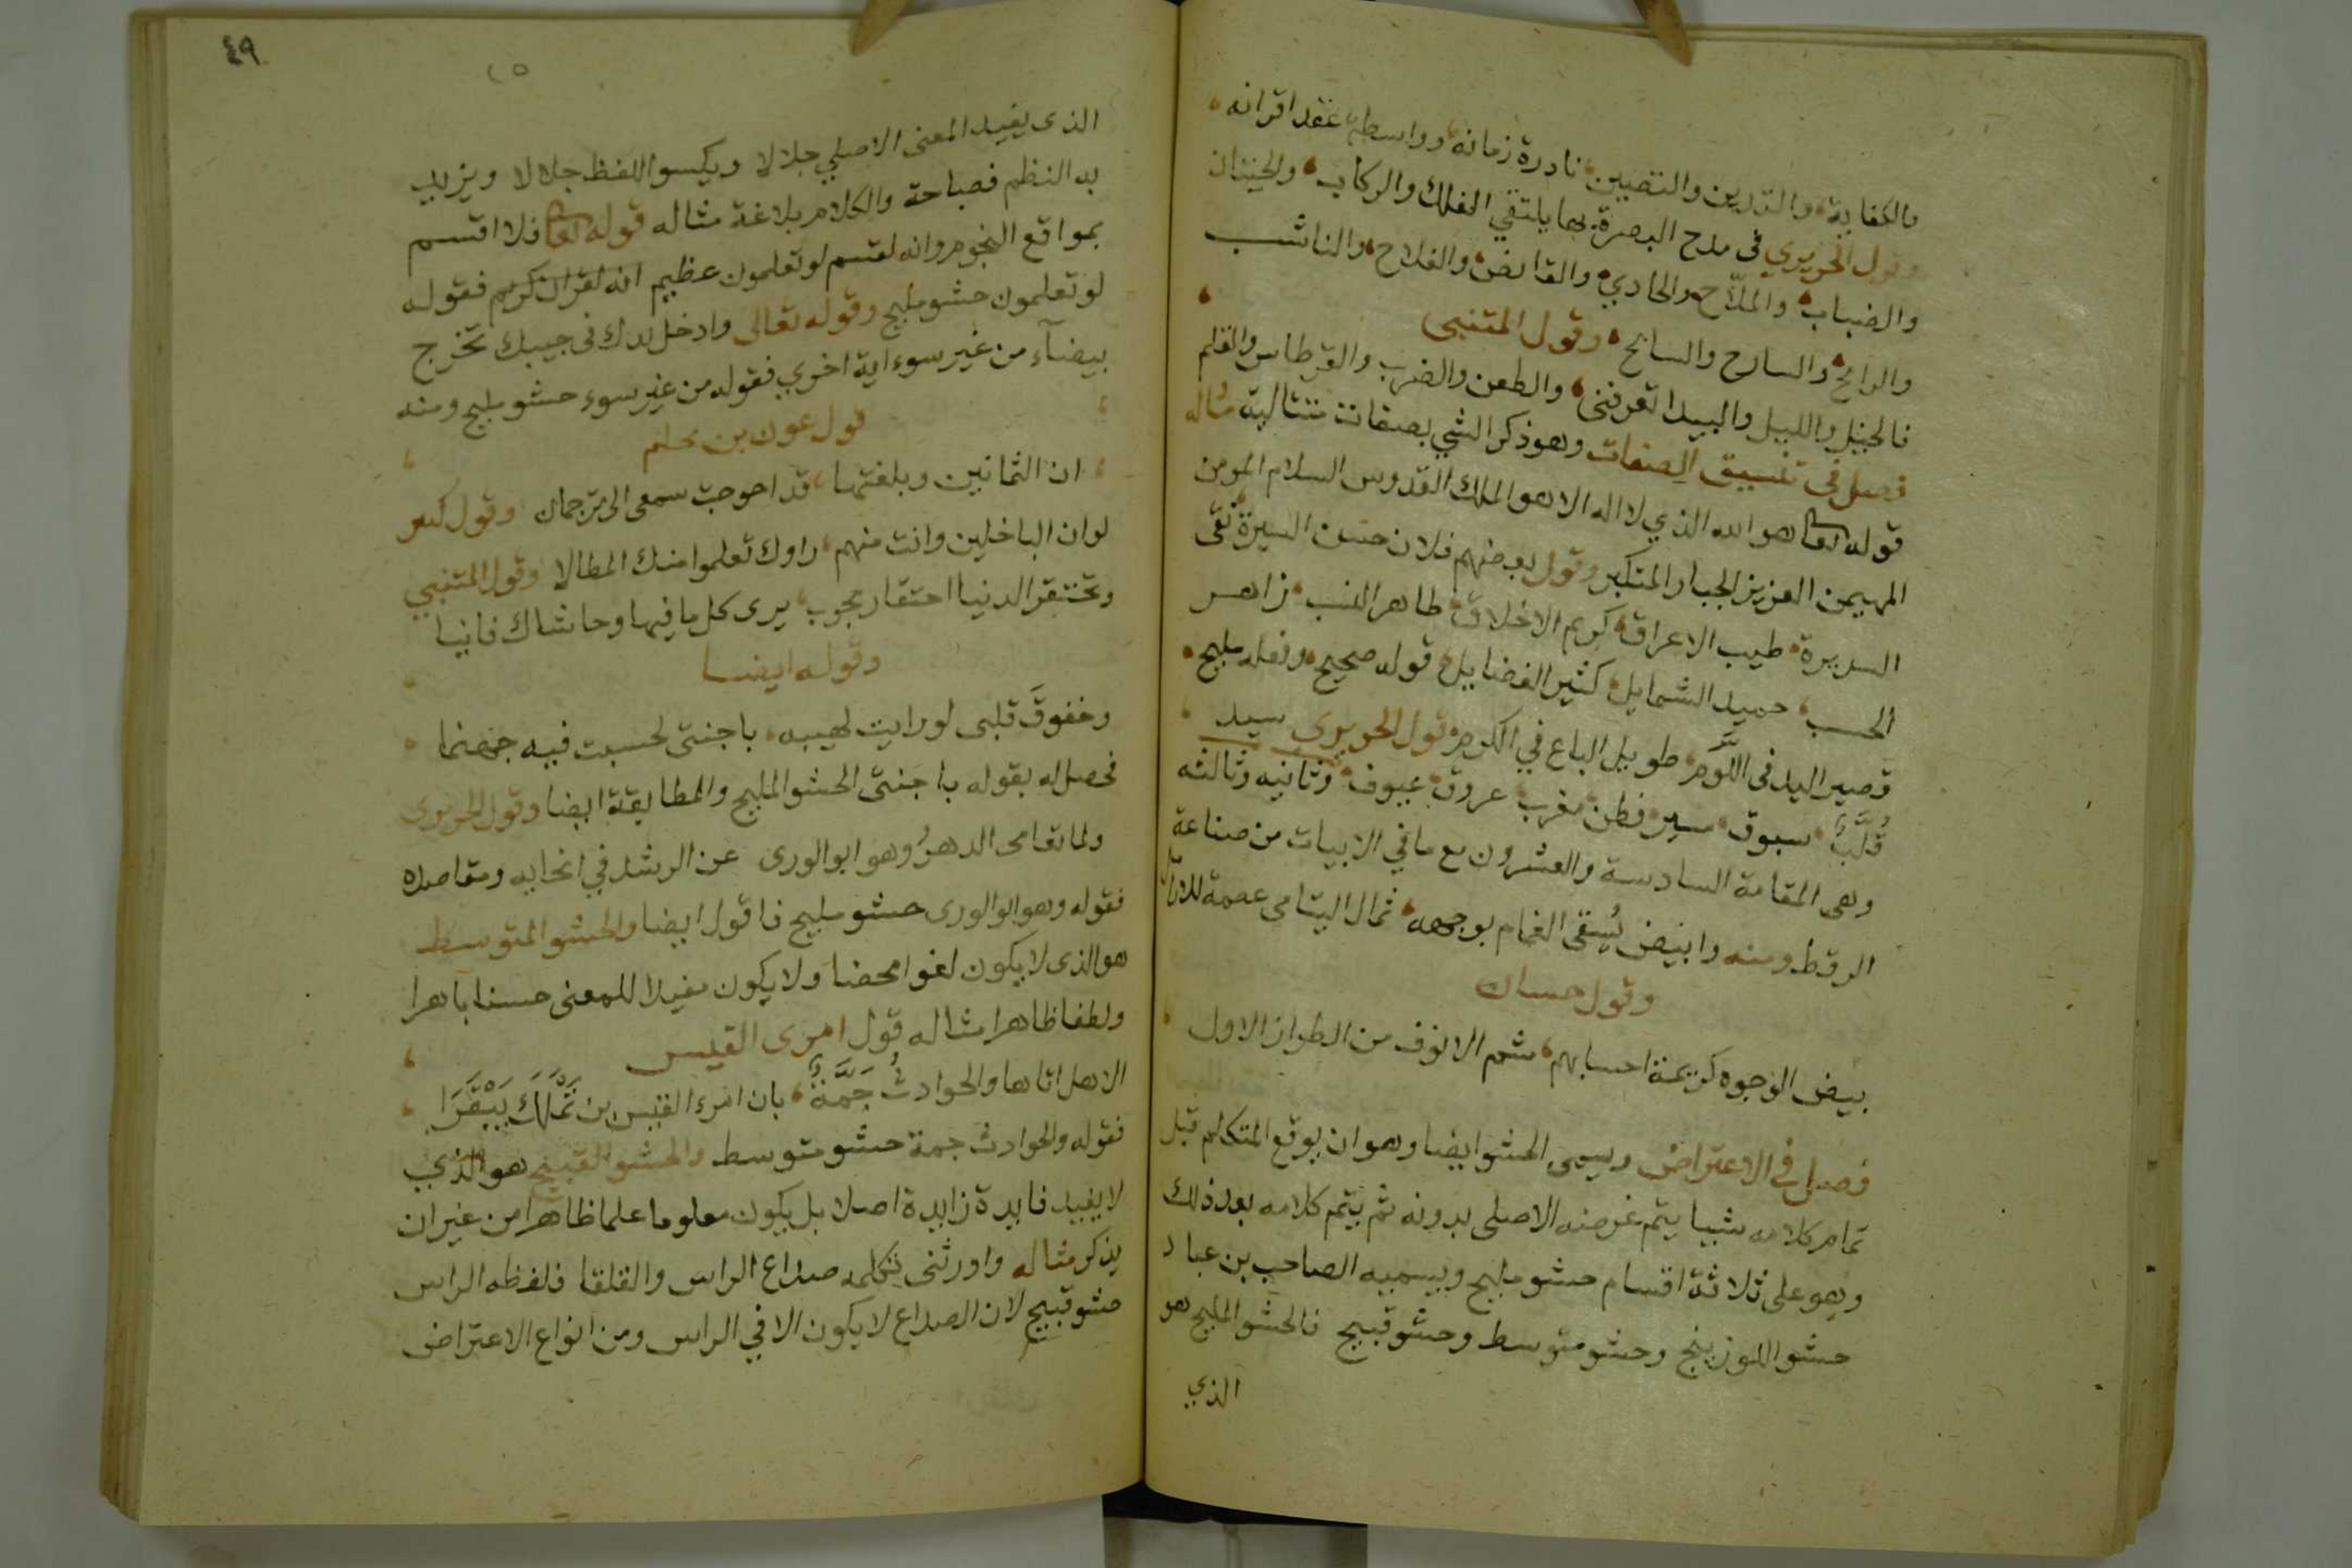 والكفاية، والتدين والتصين، نادرة زمانه، وواسطة عقد اقرانه،
وقول الحريري في مدح البصرة بها يلتقي الفلك والركاب، والحيتان
والضباب، والملّاح، والحادي، والقانص، والفلاح، والناشب
والرامح، والسارح والسابح، وقول المتنبي
فالخيل والليل والبيدا تعرفني، والطعن والضرب والقرطاس والقلم
فصل في تنسيق الصفات وهو ذكر الشي بصفات متتالية مثاله
قوله تعا هو الله الذي لا اله الا هو الملك القدوس السلام المومن
المهيمن العزيز الجبار المتكبر وقول بعضهم فلان حسن السيرة نقى
السريرة، طيب الاعراق، كريم الاخلاق، طاهر النسب، زاهر
الحسب، حميد الشمايل، كثير الفضايل، قوله صحيح، وفعله مليح،
قصير اليد في اللَّوم، طويل الباع في الكرم، قول الحريري سيد
قُلَّبٌ، سبوق، مبر، فطن، مغرب، عزوف، عيوف، وثانيه وثالثه
وهي المقامة السادسة والعشرون مع ما في الابيات من صناعة
الرقط ومنه وابيض يُسقى الغمام بوجهه، ثمال اليتامى عصمة للارامل
وقول حسان
بيض الوجوه كريمة احسابهم، شم الانوف من الطراز الاول
فصل في الاعتراض ويسمى الحشو ايضا وهو ان يوقع المتكلم قبل
تمام كلامه شيا يتم غرضه الاصلي بدونه ثم يتم كلامه بعد ذلك
وهو على ثلاثة اقسام حشو مليح ويسميه الصاحب بن عباد
حشو اللوزينج وحشو متوسط وحشو قبيح فالحشو المليح هو
الذي
٤٩
الذى يفيد المعنى الاصلي جلالا ويكسو اللفظ جلالا ويزيد
به النظم فصاحة والكلام بلاغة مثاله قوله تعا فلا اقسم
بمواقع النجوم وانه لقسم لو تعلمون عظيم انه لقران كريم فقوله
لو تعلمون حشو مليح وقوله تعالى وادخل يدك في جيبك تخرج
بيضآء من غير سوء اية اخري فقوله من غير سوء حشو مليح ومنه
قول عون بن محلم
ان الثمانين وبلغتها، قد احوجت سمعى الى ترجمان وقول كثير
لو ان الباخلين وانت منهم، راوك تعلموا منك المطالا وقول المتنبي
وتحتقر الدنيا احتقار مجرب، يرى كل ما فيها وحاشاك فانيا
وقوله ايضا
وخفوقَ قلبى لو رايت لهيبه، يا جنتى لحسبت فيه جهنما
فحصل له بقوله يا جنتى الحشو المليح والمطابقة ايضا وقول الحريرى
ولما تعامى الدهرُ وهو ابو الورى عن الرشد في انحايه ومقاصده
فقوله وهو ابو الورى حشو مليح فاقول ايضا والحشو المتوسط
هو الذى لا يكون لغوا محضا ولا يكون مفيدا للمعنى حسنا باهرا
ولطفا ظاهرا مثاله قول امرى القيس
الا هل اتاها والحوادثُ جَمَّةٌ، بان امرء القيس بن تَمْلَكَ بَيْقَرَا
فقوله والحوادث جمة حشو متوسط والحشو القبيح هو الذي
لا يفيد فايدة زايدة اصلا بل يكون معلوما علما ظاهرا من غير ان
يذكر مثاله واورثنى تكلمه صداع الراس والقلقا فلفظه الراس
حشو قبيح لان الصداع لا يكون الا في الراس ومن انواع الاعتراض